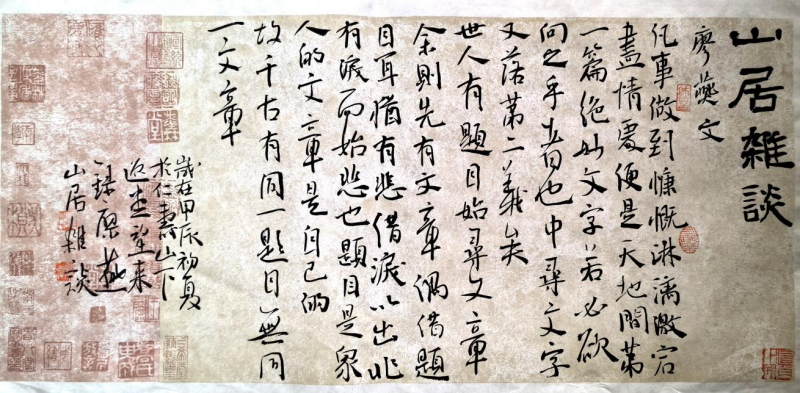 山居雜談
廖燕文
凡事做到慷慨淋漓激宕
盡情處便是天地間第
一篇絕妙文字若必欲
向之乎者也中尋文字
又落第二義矣
世人有題目始尋文章
余則先有文章偶借題
目耳猶有悲借淚以出非
有淚而始悲也題目是眾
人的文章是自己的
故千古有同一題目無同
一文章
歲在甲辰初夏
於仁壽山下
錄廖燕
山居雜談